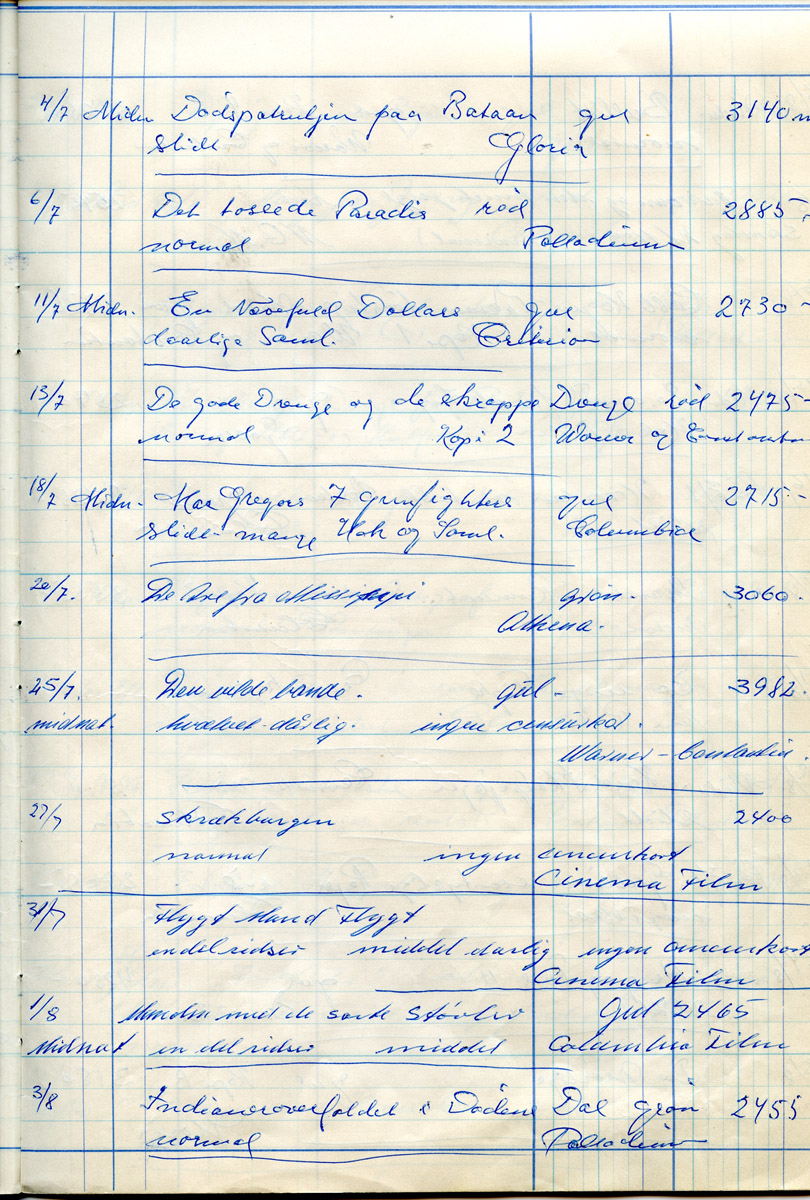 4/7 Midn Dödspatruljen paa Bataan gul 3140 m
Slidt Gloria
6/7 Det tossede Paradis röd 2885 -
normal Palladium
11/7 Midn. En Nævefuld Dollars gul 2730 -
daarlige Saml. Criterion
13/7 De gode Drenge og de skrappe Drenge röd 2475 -
normal Kopi 2 Warner og
18/7 Midn - Mac Gregors 7 gunfighters gul 2715 -
Slidt - mange Hak og Saml. Columbia
20/7. De tre fra grön - 3060 -
Athena -
25/7. Den vilde bande - gul - 3982 -
midnat. kvalitet - dårlig. ingen censurkor.
Warner - Constantin.
27/7 Skrækburgen 2400
normal ingen censurkort
Cinema Film
31/7 Flygt Mand Flygt
en del ridser middel darlig ingen censurkort
Cinema Film
1/8 Manden med de sorte Støvler Gul 2465
Midnat en del ridser middel Columbia Film
3/8 Indianeroverfaldet i Dödens Dal grön 2455
normal Palladium